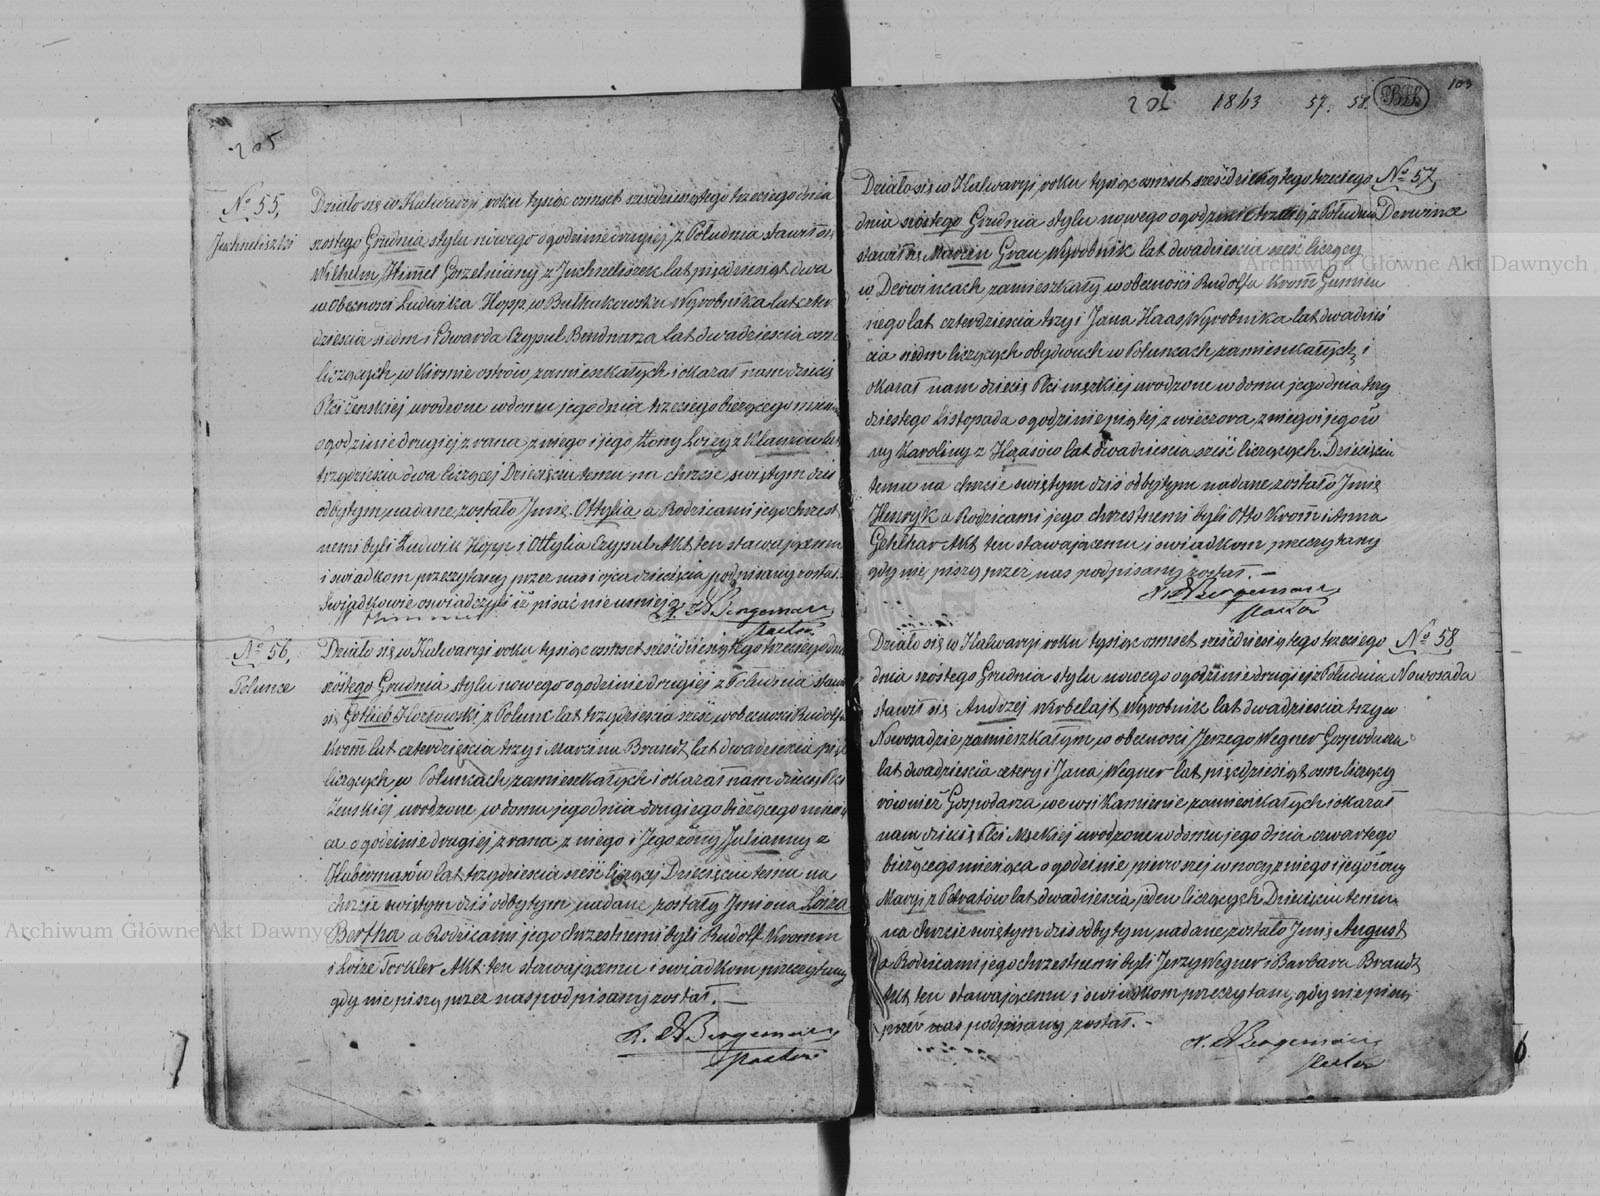 205
No 55,
Juchneliszki
Działo się w Kalwaryi, roku tysiąc osmset sześdziesiątego trzeciego dnia
szostego Grudnia stylu nowego o godzinie drugiej z Południa stawił się
Wilhelm Himel Gorzelniany z Juchneliszek lat pięcdziesiąt dwa
w Obecnosci Ludwika Hopp w Bulhakowsku Wyrobnika lat czter
dziescia siedm i Edwarda Czypul Bendnarza lat dwadziescia osm
liczących w Kirsnie ostrów zamieszkałych i okazał nam dziecię
Płci żenskiej urodzone w domu jego dnia trzeciego bieżącego miesią
o godzinie drugiej z rana z niego i jego Żony Loizy z Klauzów lat
trzydziescia dwa liczącej Dziecięciu temu na chrzcie swiętym dzis
odbytym nadane zostało Jmię Ottylia a Rodzicami jego chrzest
nemi byli Ludwik Hopp i Ottylia Czypul Akt ten stawającemu
i swiadkom przeczytany przez nas i ojca dziecięcia podpisany został
Swiadkowie oswiadczyli iż pisać nie umieją
Bergemann
Pastor
No 56,
Polunce
Działo się w Kalwaryi roku tysiąc osmset sześdziesiątego trzeciego dnia
szóstego Grudnia stylu nowego o godzinie drugiej z Południa stawił
się Gotlieb Kozłowski z Polunc lat trzydziescia sześć w obecnosci Rudolfa
Krom̅ lat czterdziescia trzy i Marcina Brandt lat dwadziescia pięć
liczących w Poluncach zamieszkałych i okazał nam dziecię Płci
Żenskiej urodzone w domu jego dnia drugiego bieżącego miesią
ca o godzinie drugiej z rana z niego i Jego żony Julianny z
Hubernarów lat trzydziescia sześć liczącej Dziecięciu temu na
chrzcie swiętym dzis odbytym nadane zostały Jmiona Loiza
Bertha a Rodzicami jego chrzestnemi byli Rudolf Kromm
i Loize Torkler Akt ten stawającemu i swiadkom przeczytany
gdy nie piszą przez nas podpisany został. —
Bergemann
Pastor
1863 57. 58.
103
Działo się w Kalwaryi, roku tysiąc osmset sześćdziesiątego trzeciego No 57,
dnia szostego Grudnia stylu nowego o godzinie trzeciej z Południa Derwince
stawił się Marcin Grau, Wyrobnik lat dwadziescia sześć liczący
w Derwincach zamieszkały w obecnosci Rudolfa Krom̅ Gumien
nego lat czterdziescia trzy i Jana Haas Wyrobnika lat dwadzieś
cia siedm liczących obydwuch w Poluncach zamieszkałych i
okazał nam dziecię Płci męzkiej urodzone w domu jego dnia trzy
dziestego Listopada o godzinie piątej z wieczora z niego i jego żo
ny Karoliny z Haasów lat dwadziescia sześć liczących. Dziecięciu
temu na chrzcie swiętym dzis odbytym nadane zostało Jmię
Henryk a Rodzicami jego chrzestnemi byli Otto Krom̅ i Anna
Gehlhar Akt ten stawającemu i swiadkom przeczytany
gdy nie piszą przez nas podpisany został. —
Bergemann
Pastor
Działo się w Kalwaryi roku tysiąc osmset sześćdziesiątego trzeciego No 58
dnia szóstego Grudnia stylu nowego o godzinie drugiej z Południa Nowosada
stawił się Andrzej Wrobelajt Wyrobnik lat dwadziescia trzy w
Nowosadzie zamieszkałym w obecnosci Jerzego Wegner Gospodarza
lat dwadziescia cztery i Jana Wegner lat pięcdziesiąt osm liczący
również Gospodarza we wsi Kamienie zamieszkałych i okazał
nam dziecię Płci Męzkiej urodzone w domu jego dnia czwartego
bieżącego miesiąca o godzinie pierwszej w nocy z niego i jego żony
Maryi z Petratów lat dwadziescia jeden liczących Dziecięciu temu
na chrzcie swiętym dzis odbytym nadane zostało Jmię August
a Rodzicami jego chrzestnemi byli Jerzy Wegner i Barbara Brandt
Akt ten stawającemu i swiadkom przeczytany gdy nie piszą
przez nas podpisany został. —
Bergemann
Pastor
Archiwum Główne Akt Dawnych
Archiwum Główne Akt Dawnych